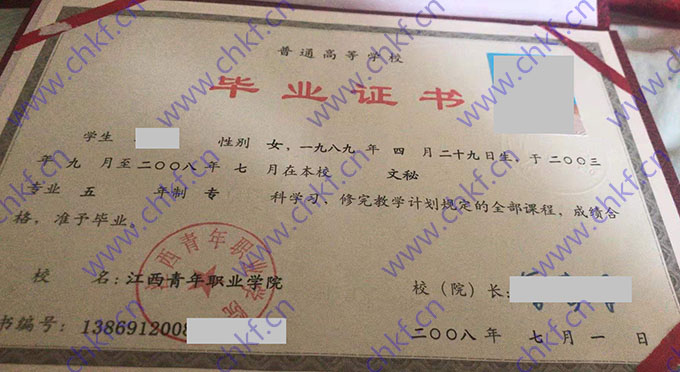 普通高等学校
毕业证书
学生 性别 女，一九八九年 四 月二十九日生，于二〇〇三
年 九 月至二〇〇八年 七 月在本校 文秘
专业 五 年制 专 科学习，修完教学计划规定的全部课程，成绩合
格，准予毕业。
江西青年职业学院
校 名：江西青年职业学院
校（院）长：
书编号：1386912008
二〇〇八年 七 月 一 日
www.chkf.cn